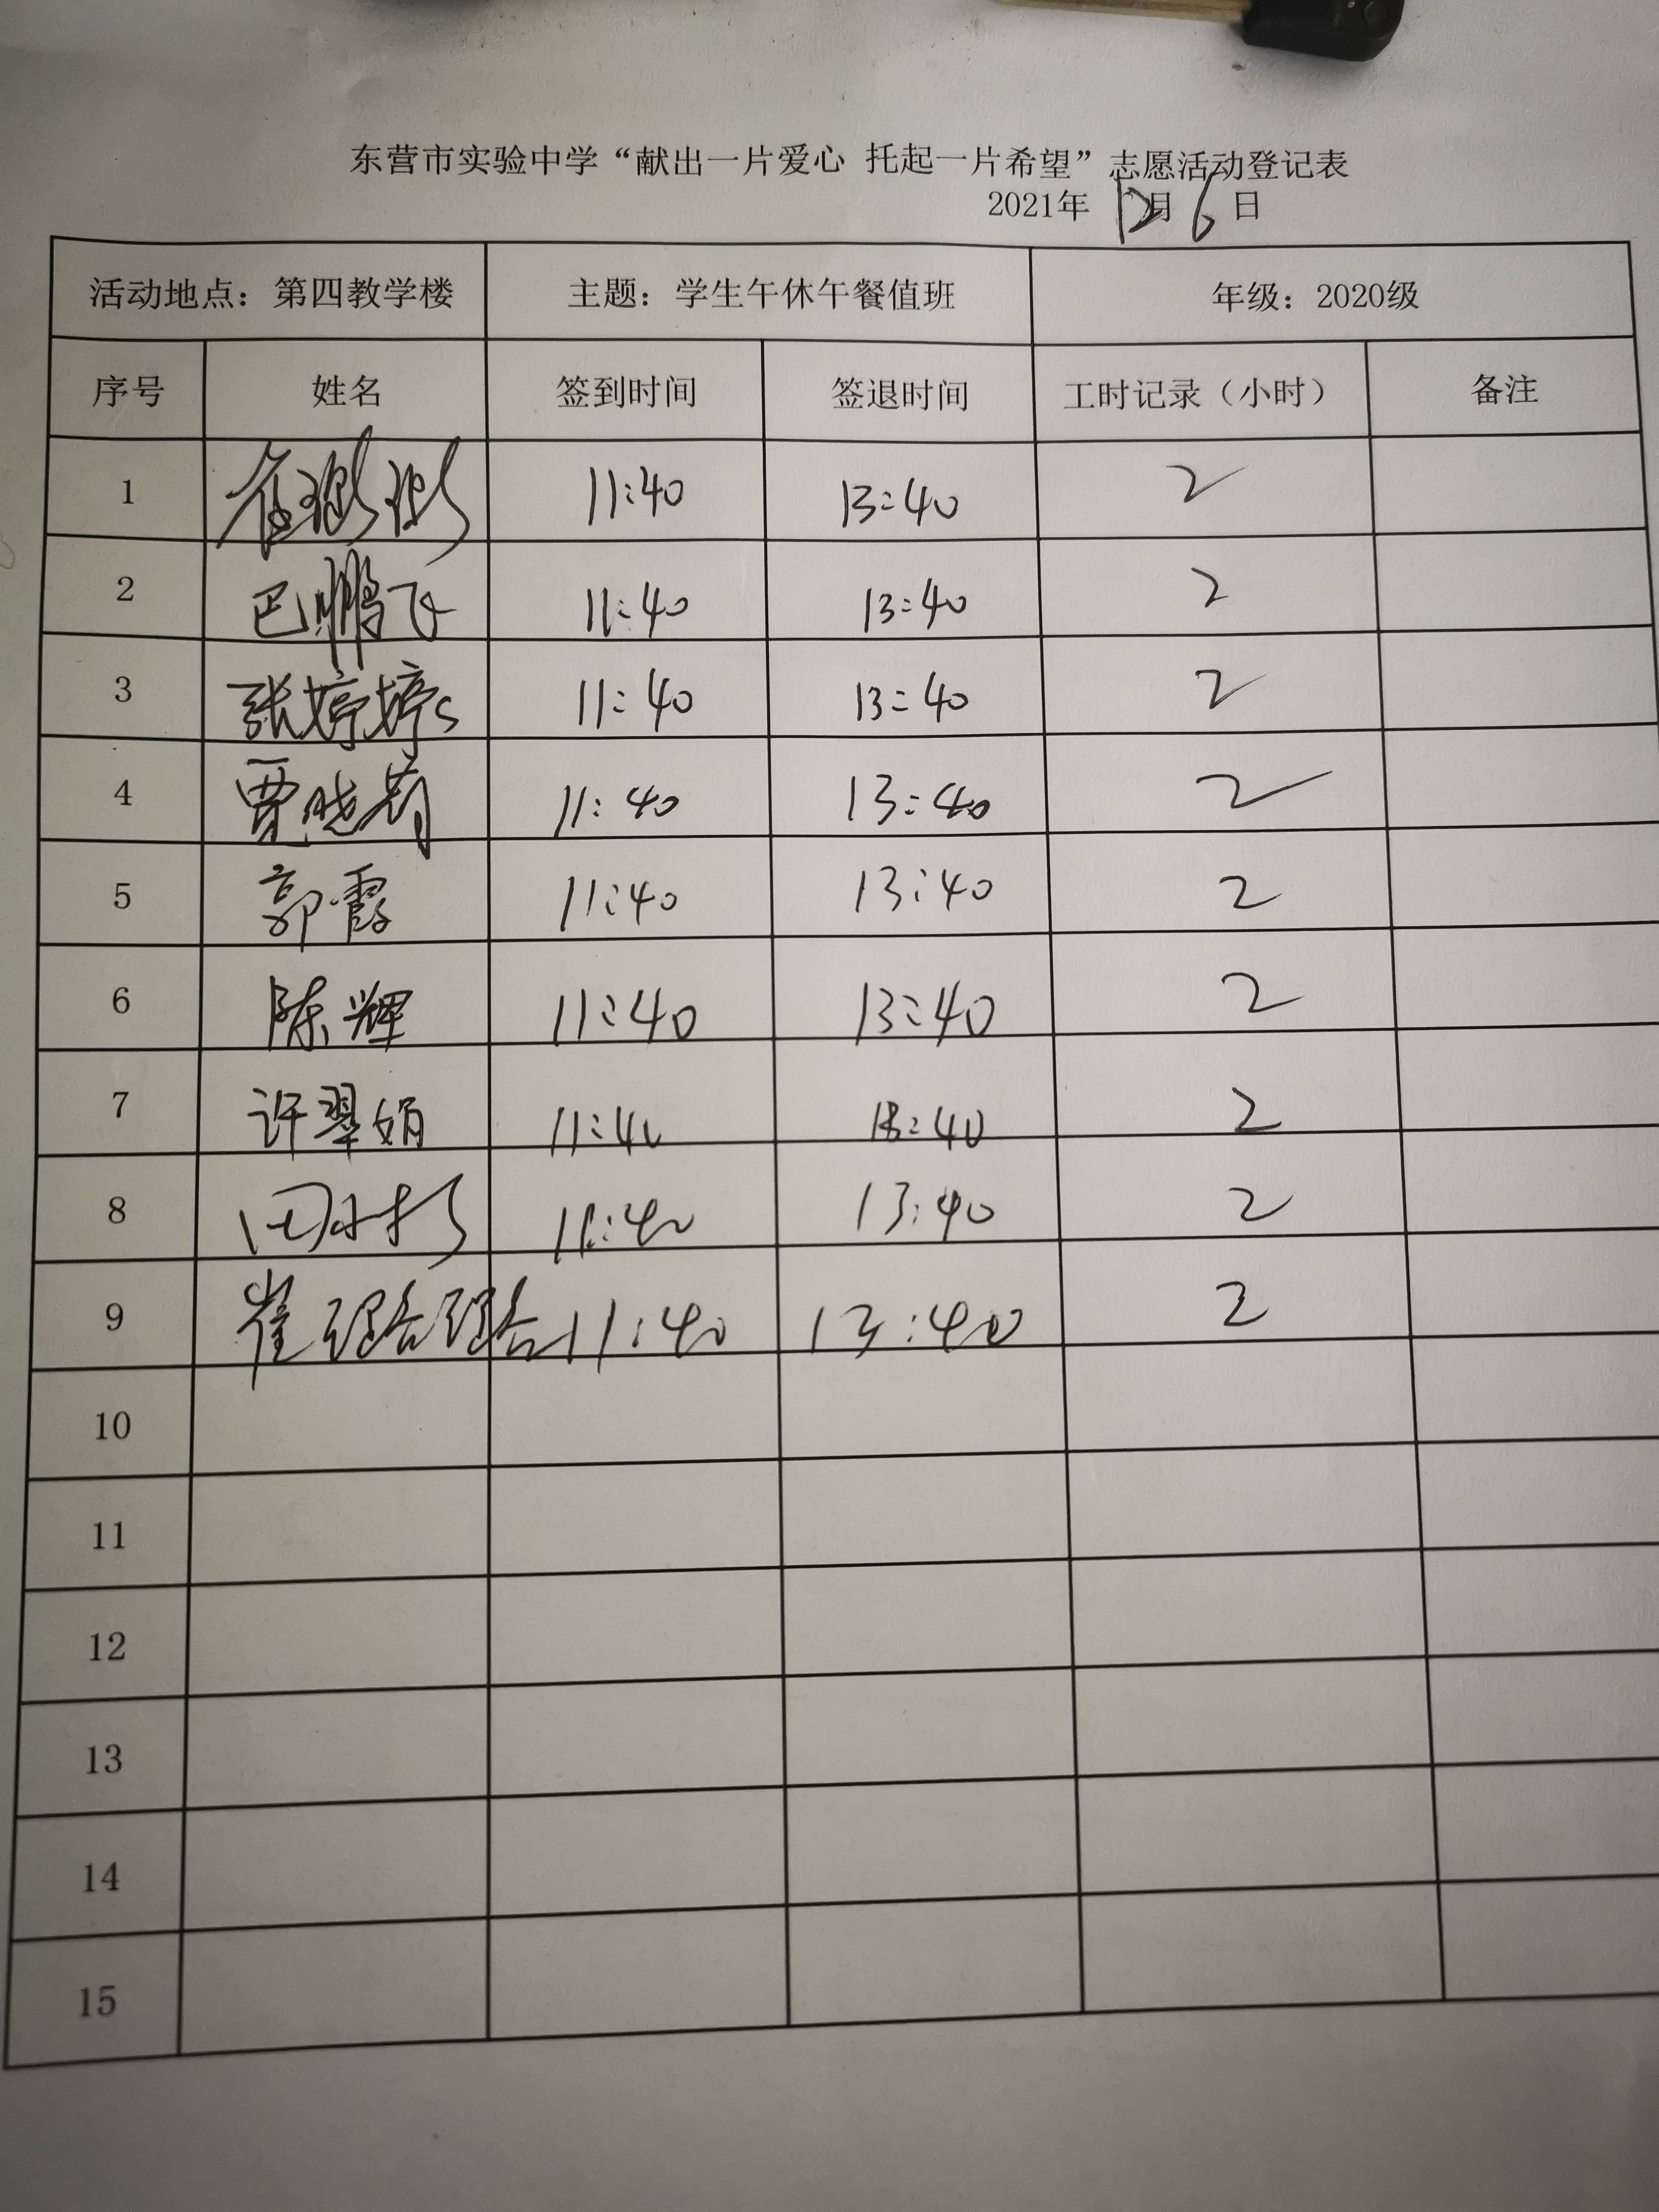 东营市实验中学“献出一片爱心 托起一片希望”志愿活动登记表
2021年 12月 6 日
活动地点：第四教学楼 主题：学生午休午餐值班 年级：2020级
序号 姓名 签到时间 签退时间 工时记录（小时） 备注
1 11:40 13:40 2
2 巴鹏飞 11:40 13:40 2
3 张婷婷 11:40 13:40 2
4 贾晓 11:40 13:40 2
5 郭霞 11:40 13:40 2
6 陈辉 11:40 13:40 2
7 许翠娟 11:40 13:40 2
8 11:40 13:40 2
9 崔 11:40 13:40 2
10
11
12
13
14
15